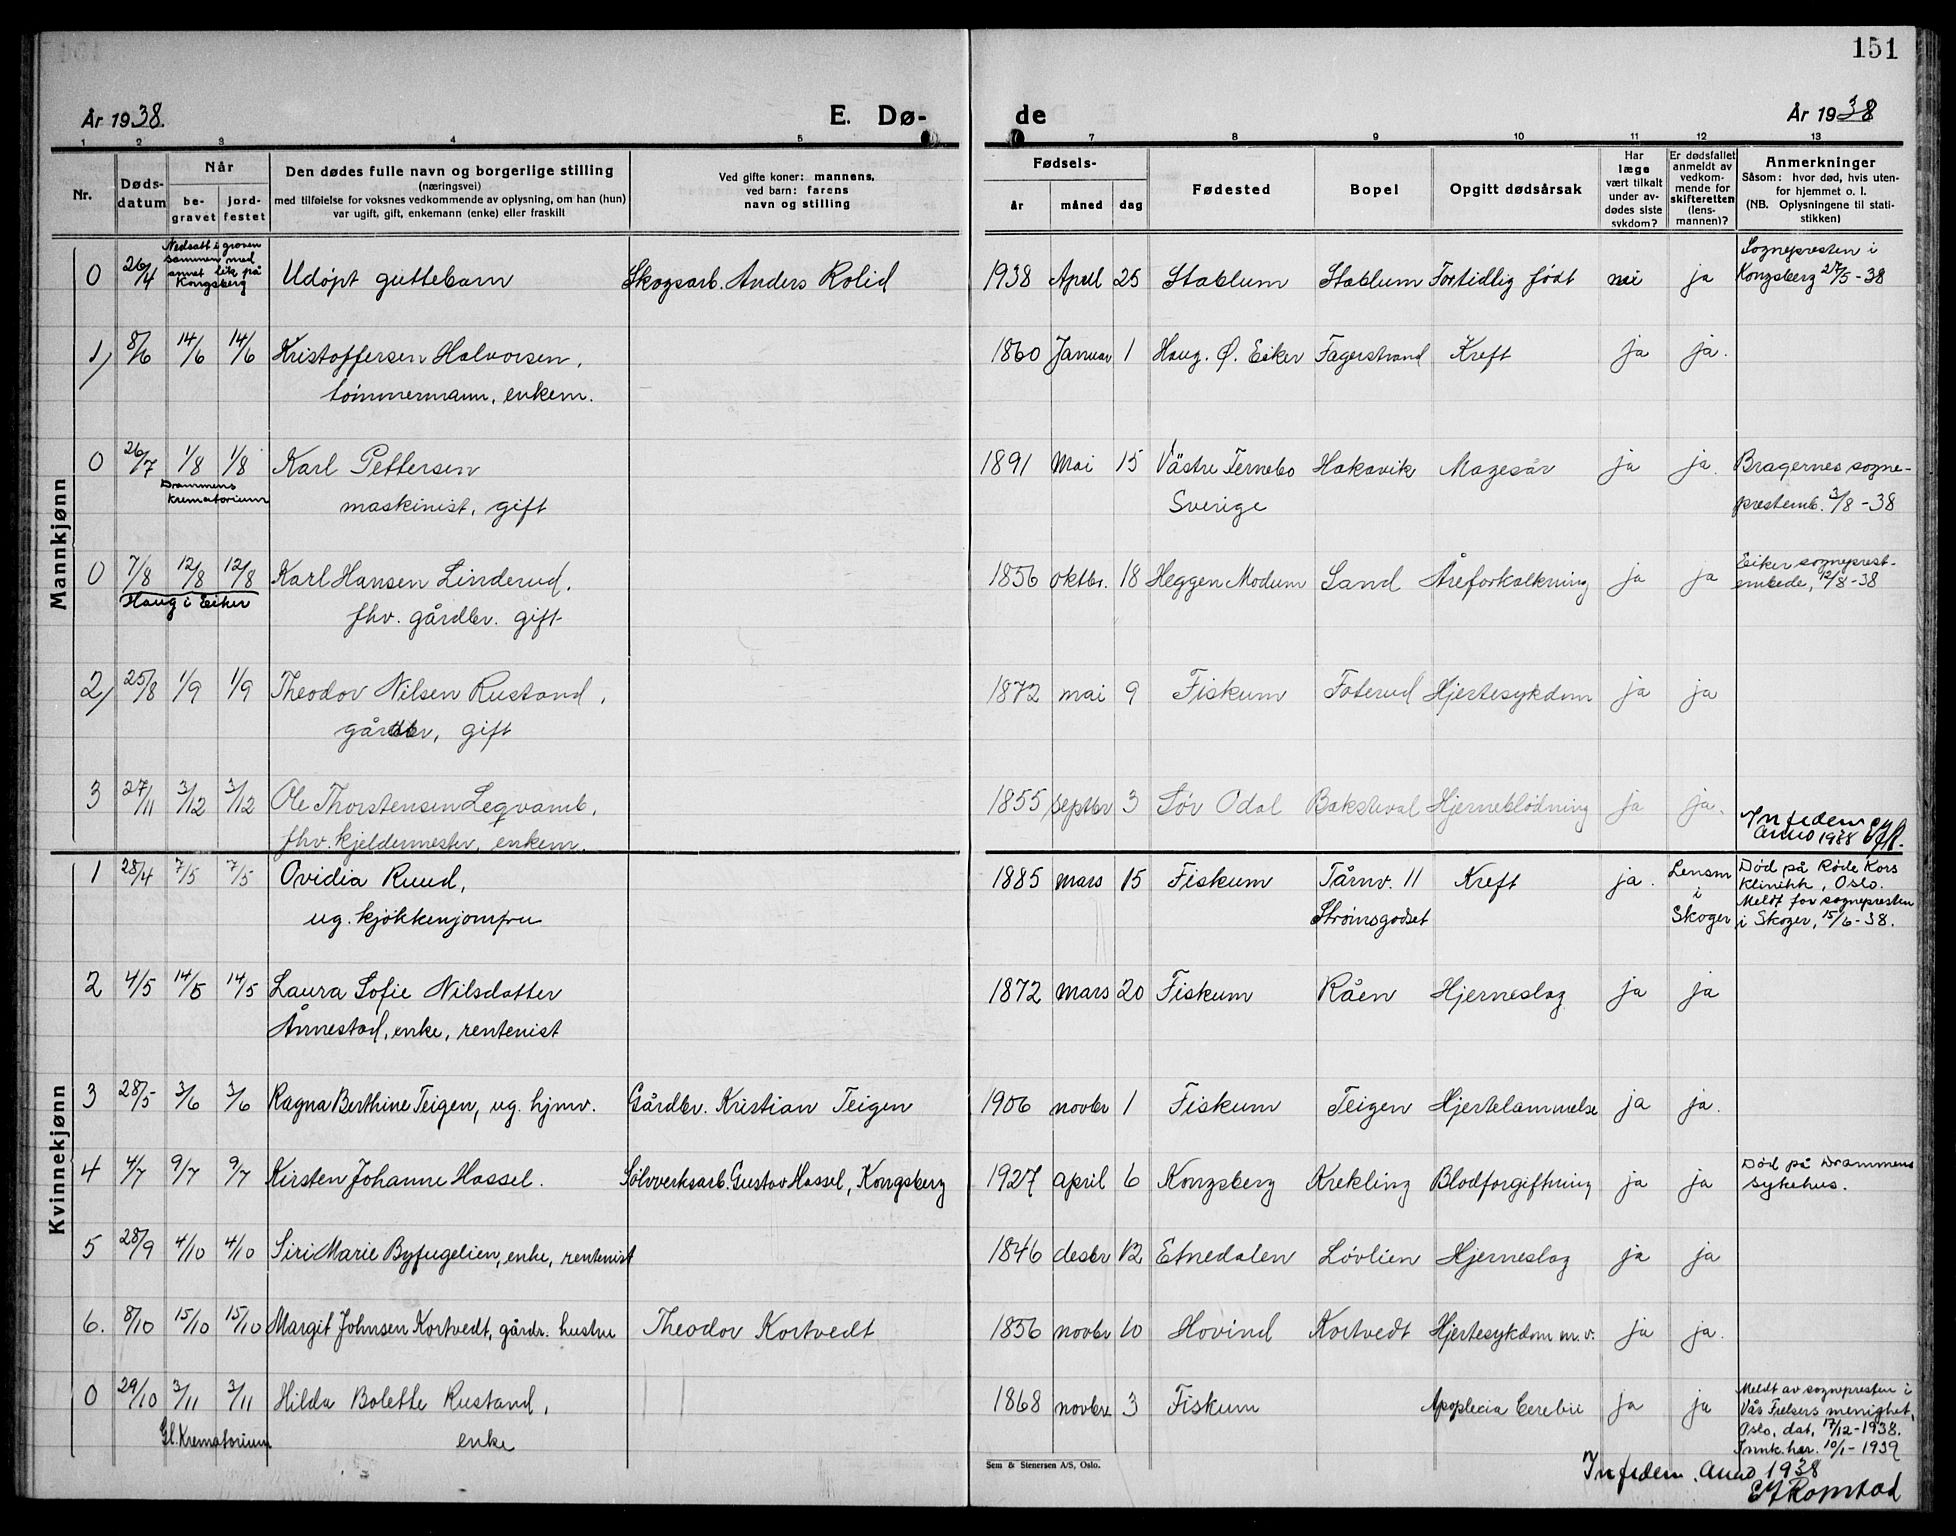 151
År 1938. E. Dø- de År 1938
1 2 3 4 5 7 8 9 10 11 12 13
Nr. Døds-datum Når be-gravet jord-festet Den dødes fulle navn og borgerlige stilling (næringsvei) med tilføielse for voksnes vedkommende av oplysning, om han (hun) var ugift, gift, enkemann (enke) eller fraskilt Ved gifte koner: mannens, ved barn: farens navn og stilling Fødsels- år måned dag Fødested Bopel Opgitt dødsårsak Har læge vært tilkalt under av-dødes siste sykdom? Er dødsfallet anmeldt av vedkom-mende for skifteretten (lens-mannen)? Anmerkninger Såsom: hvor død, hvis uten-for hjemmet o. l. (NB. Oplysningene til stati-stikken)
Mannkjønn
0 26/4 Nedsatt i graven sammen med annet lik på Kongsberg Udøpt guttebarn Skogsarb. Anders Rolid 1938 April 25 Stablum Stablum Fortidlig født nei ja Sognepresten i Kongsberg 27/5-38
1) 8/6 14/6 14/6 Kristoffersen Halvorsen, 1860 Januar 1 Haug. Ø. Eiker Fagerstrand Kreft ja ja.
tømmermann, enkem.
0 26/7 1/8 1/8 Karl Pettersen 1891 Mai 15 Västre Ternebo Hakavik Magesår ja ja. Bragernes sogne-
Drammens krematorium maskinist, gift Sverige prestemb. 3/8-38
0 7/8 12/8 12/8 Karl Hansen Linderud, 1856 oktbr. 18 Heggen Modum Sand Åreforkalkning ja ja Eiker sogneprest-
Haug i Eiker fhv. gårdbr. gift embede, 12/8-38
2) 25/8 1/9 1/9 Theodor Nilsen Rustand, 1872 mai 9 Fiskum Foterud Hjertesykdom ja ja
gårdbr, gift
3 27/11 3/12 3/12 Ole Thorstensen Leqvamb, 1855 septbr 3 Sør Odal Baksteval Hjerneblødning ja ja.
fhv. kjeldermester, enkem. In fidem Anno 1938
Kvinnekjønn
1 28/4 7/5 7/5 Ovidia Ruud, 1885 mars 15 Fiskum Tårnv. 11 Kreft ja. Lensm i Skoger Død på Røde Kors
ug. kjøkkenjomfru Strømsgodset Klinikk, Oslo.
Meldt for sognepresten
i Skoger, 15/6-38.
2 4/5 14/5 14/5 Laura Sofie Nilsdatter 1872 mars 20 Fiskum Råen Hjerneslag ja ja
Ånnestad, enke, rentenist
3 28/5 3/6 3/6 Ragna Berthine Teigen, ug. hjmv. Gårdbr. Kristian Teigen 1906 novbr 1 Fiskum Teigen Hjertelammelse ja ja.
4 4/7 9/7 9/7 Kirsten Johanne Hassel. Sølvverksarb. Gustav Hassel, Kongsberg 1927 april 6 Kongsberg Krekling Blodforgiftning ja ja Død på Drammens
sykehus.
5 28/9 4/10 4/10 Siri Marie Byfugelien, enke, rentenist 1846 desbr 12 Etnedalen Løvlien Hjerneslag ja ja
6. 8/10 15/10 15/10 Margit Johnsen Kortvedt, gårdr. hustru Theodor Kortvedt 1856 novbr 10 Hovind Kortvedt Hjertesykdom m.v. ja ja.
0 29/10 3/11 3/11 Hilda Bolette Rustand, 1868 novbr. 3 Fiskum Apoplecia Cerebri ja ja Meldt av sognepresten i
Gl. Krematorium enke Vås Frelsers menighet,
Oslo, dat. 17/12-1938.
Innk. her. 10/1-1939
Sem & Stenersen A/S, Oslo.
In fidem. Anno 1938